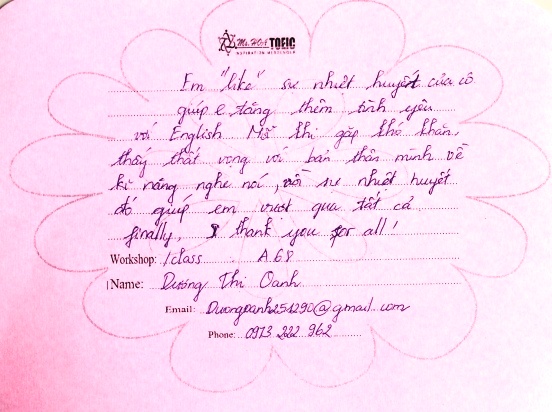 Ms. Hoa TOEIC
Em "like" sự nhiệt huyết của cô
giúp e tăng thêm tình yêu
với English Mỗi khi gặp khó khăn,
thấy thất vọng với bản thân mình về
kĩ năng nghe nói, với sự nhiệt huyết
đó giúp em vượt qua tất cả
finally, I thank you for all!
Workshop: /class A68
Name: Dương Thi Oanh
Email: Duongoanh251290@gmail.com
Phone: 0973 222 962